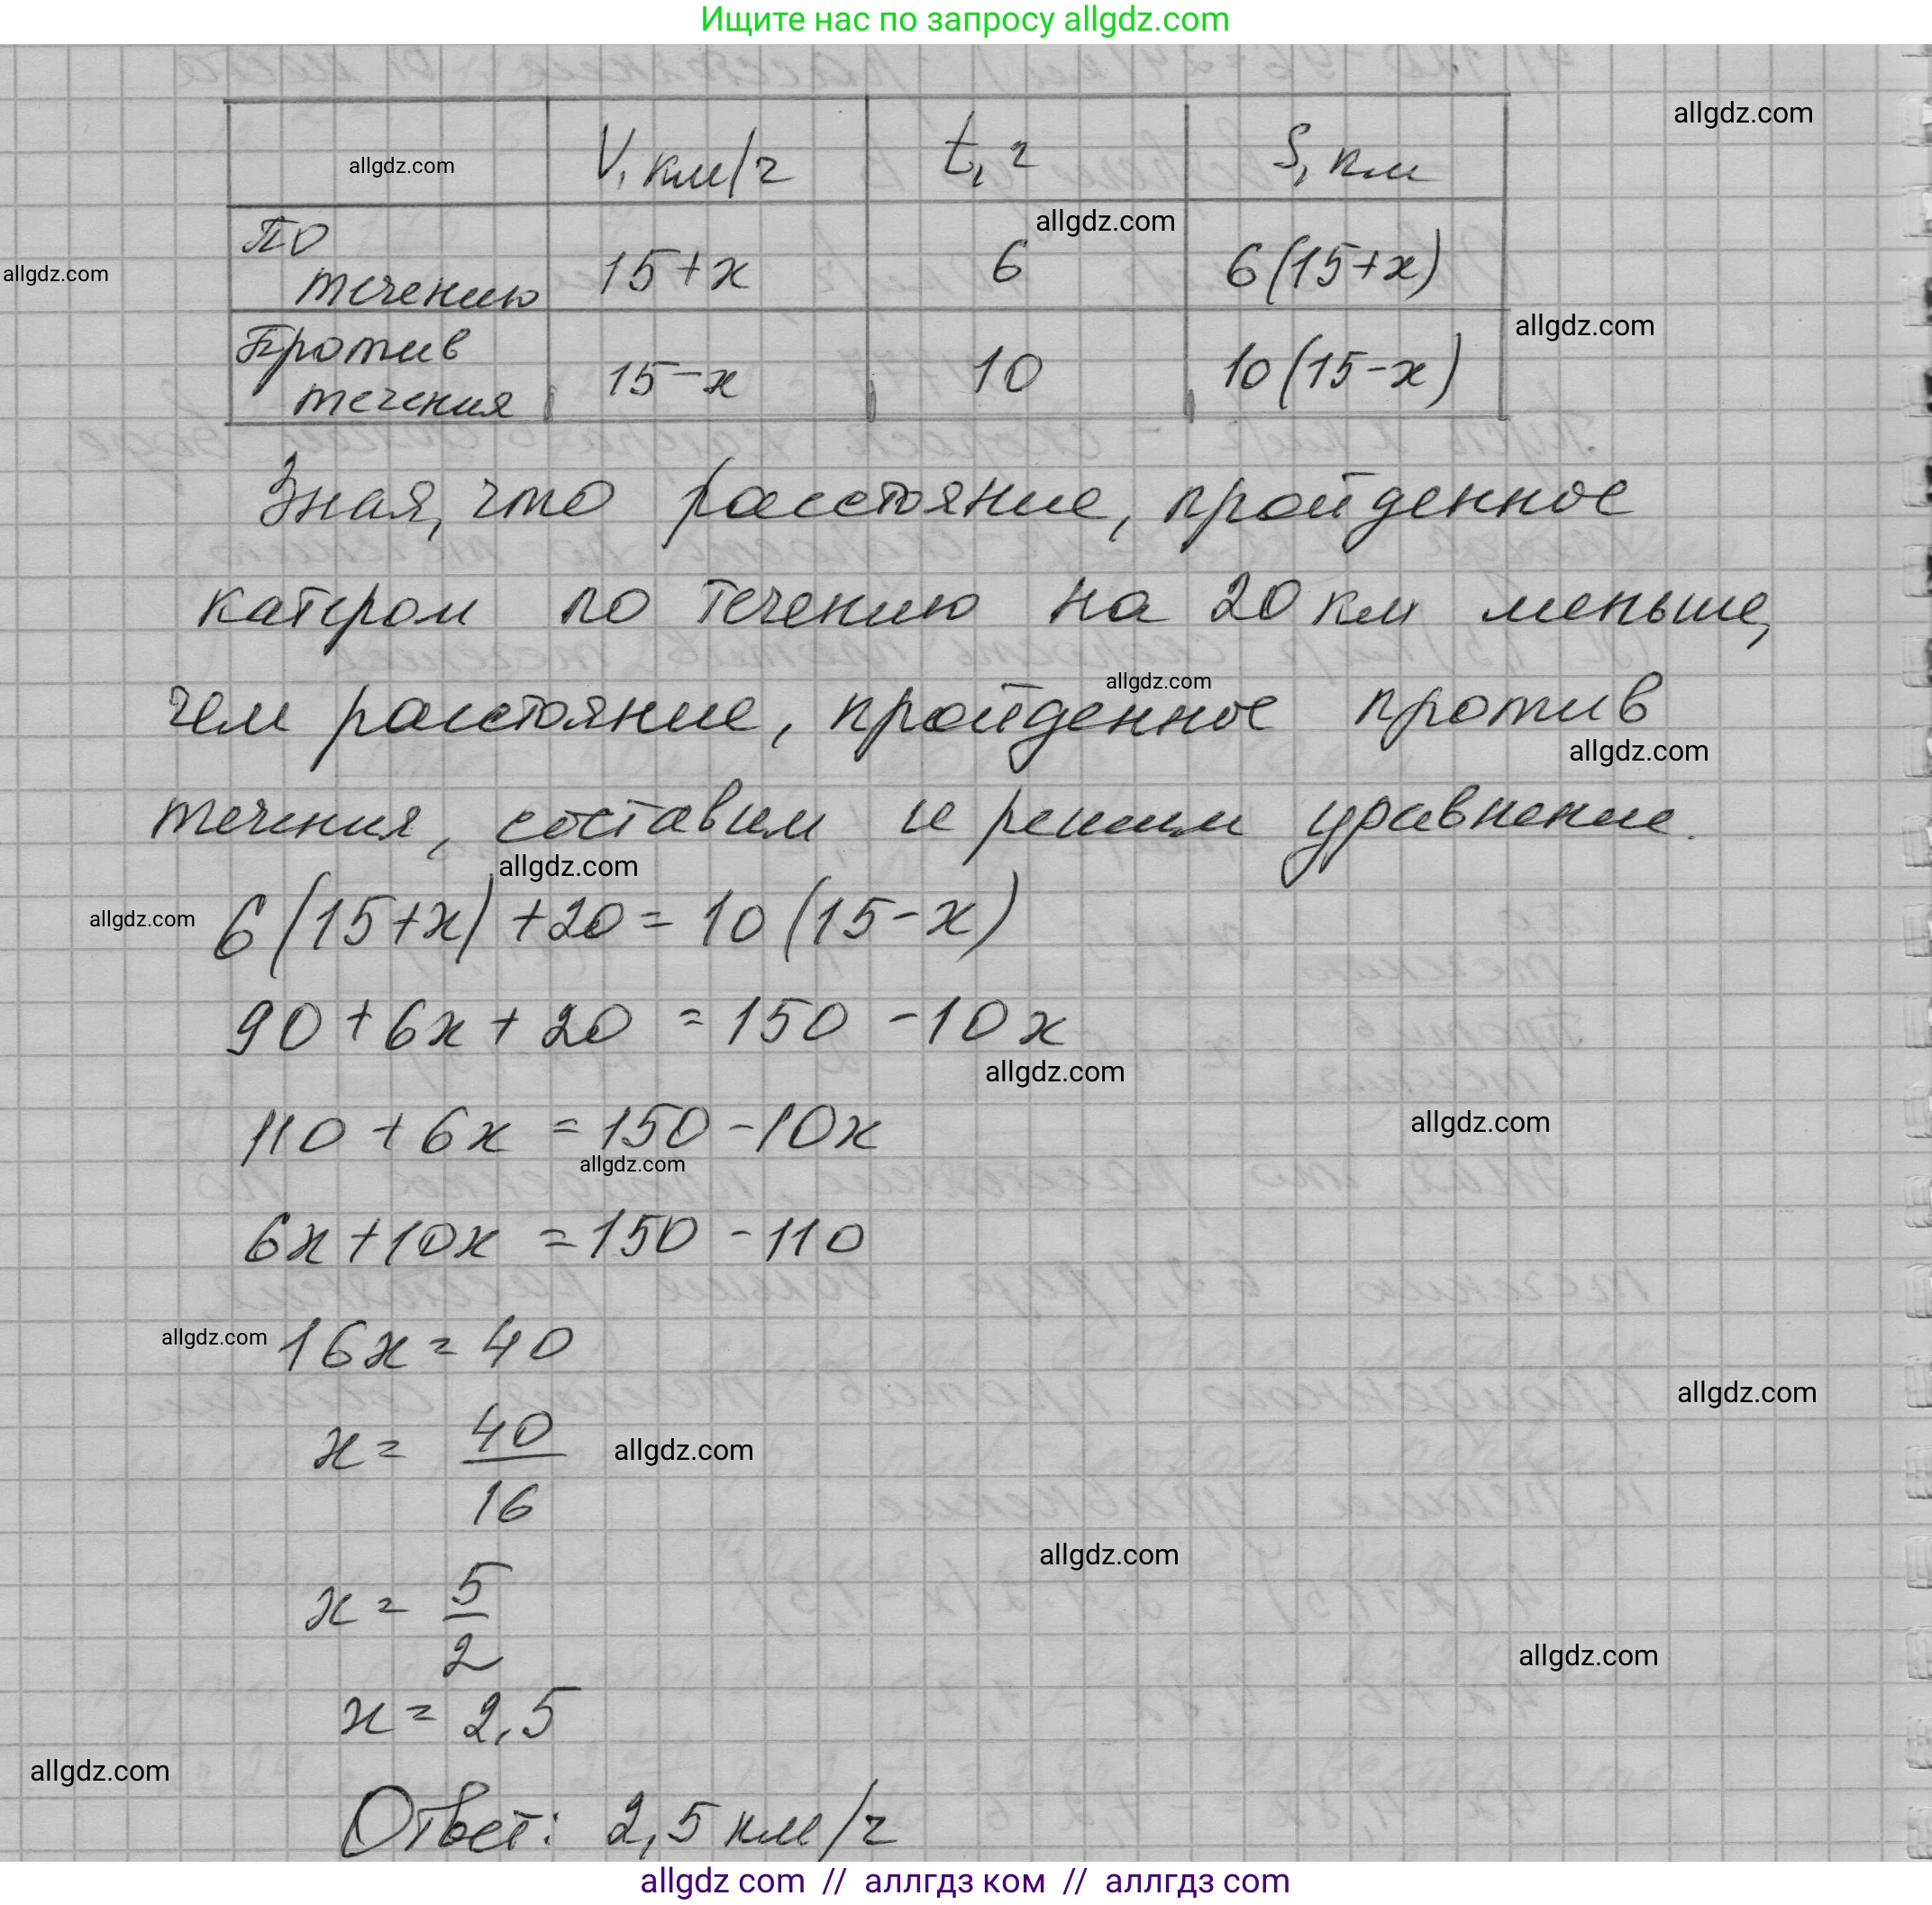 Ищите нас по запросу allgdz.com
allgdz.com
allgdz.com V, км/ч t, ч S, км
allgdz.com
allgdz.com
по течению 15+x 6 6(15+x)
allgdz.com
против течения 15-x 10 10(15-x)
Зная, что расстояние, пройденное
катером по течению на 20 км меньше,
allgdz.com
чем расстояние, пройденное против
allgdz.com
течения, составим и решим уравнение.
allgdz.com
allgdz.com 6(15+x)+20=10(15-x)
90+6x+20=150-10x
allgdz.com
allgdz.com
110+6x=150-10x
allgdz.com
6x+10x=150-110
allgdz.com 16x=40
allgdz.com
x= 40/16 allgdz.com
allgdz.com
x= 5/2
allgdz.com
x=2,5
allgdz.com
Ответ: 2,5 км/ч
allgdz com // аллгдз ком // аллгдз com